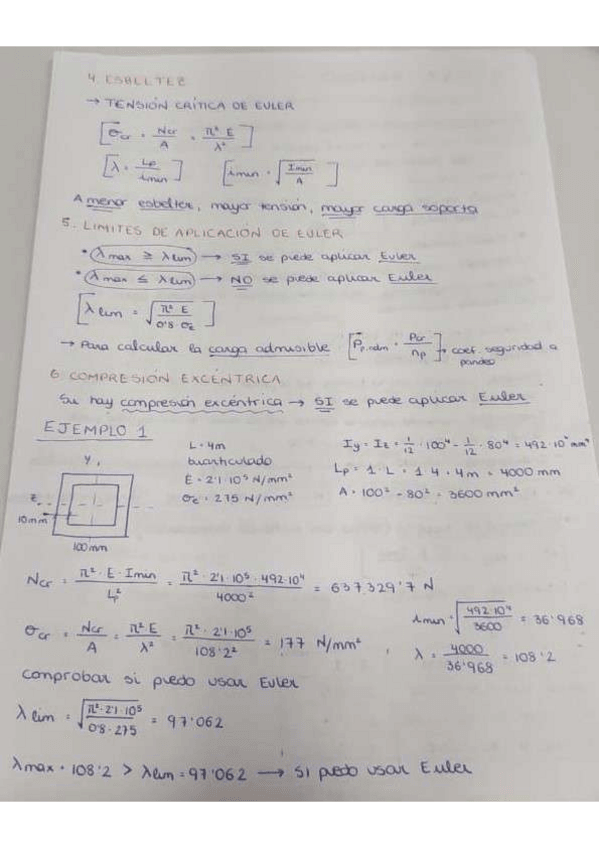 4. ESBELTEZ
→ TENSIÓN CRÍTICA DE EULER
[σcr = Ncr/A = π² E/λ²]
[λ = Lp/imin] [imin = √(Imin/A)]
A menor esbeltez, mayor tensión, mayor carga soporta
5. LIMITES DE APLICACIÓN DE EULER
• λmax ≥ λlim → SI se puede aplicar Euler
• λmax ≤ λlim → NO se puede aplicar Euler
[λlim = √(π² E/0'8·σe)]
→ Para calcular la carga admisible [Pp.adm = Pcr/np] → coef. seguridad a pandeo
6. COMPRESIÓN EXCÉNTRICA
Si hay compresión excéntrica → SI se puede aplicar Euler
EJEMPLO 1
L = 4m
biarticulado
E = 2'1·10⁵ N/mm²
σe = 275 N/mm²
Iy = Iz = 1/12 · 100⁴ - 1/12 · 80⁴ = 492·10⁴ mm⁴
Lp = 1·L = 1·4 = 4m = 4000 mm
A = 100² - 80² = 3600 mm²
y
z
10mm
100mm
Ncr = π²·E·Imin/Lp² = π²·2'1·10⁵·492·10⁴/4000² = 637329'7 N
σcr = Ncr/A = π² E/λ² = π²·2'1·10⁵/108'2² = 177 N/mm²
imin = √(492·10⁴/3600) = 36'968
λ = 4000/36'968 = 108'2
Comprobar si puedo usar Euler
λlim = √(π²·2'1·10⁵/0'8·275) = 97'062
λmax = 108'2 > λlim = 97'062 → SI puedo usar Euler